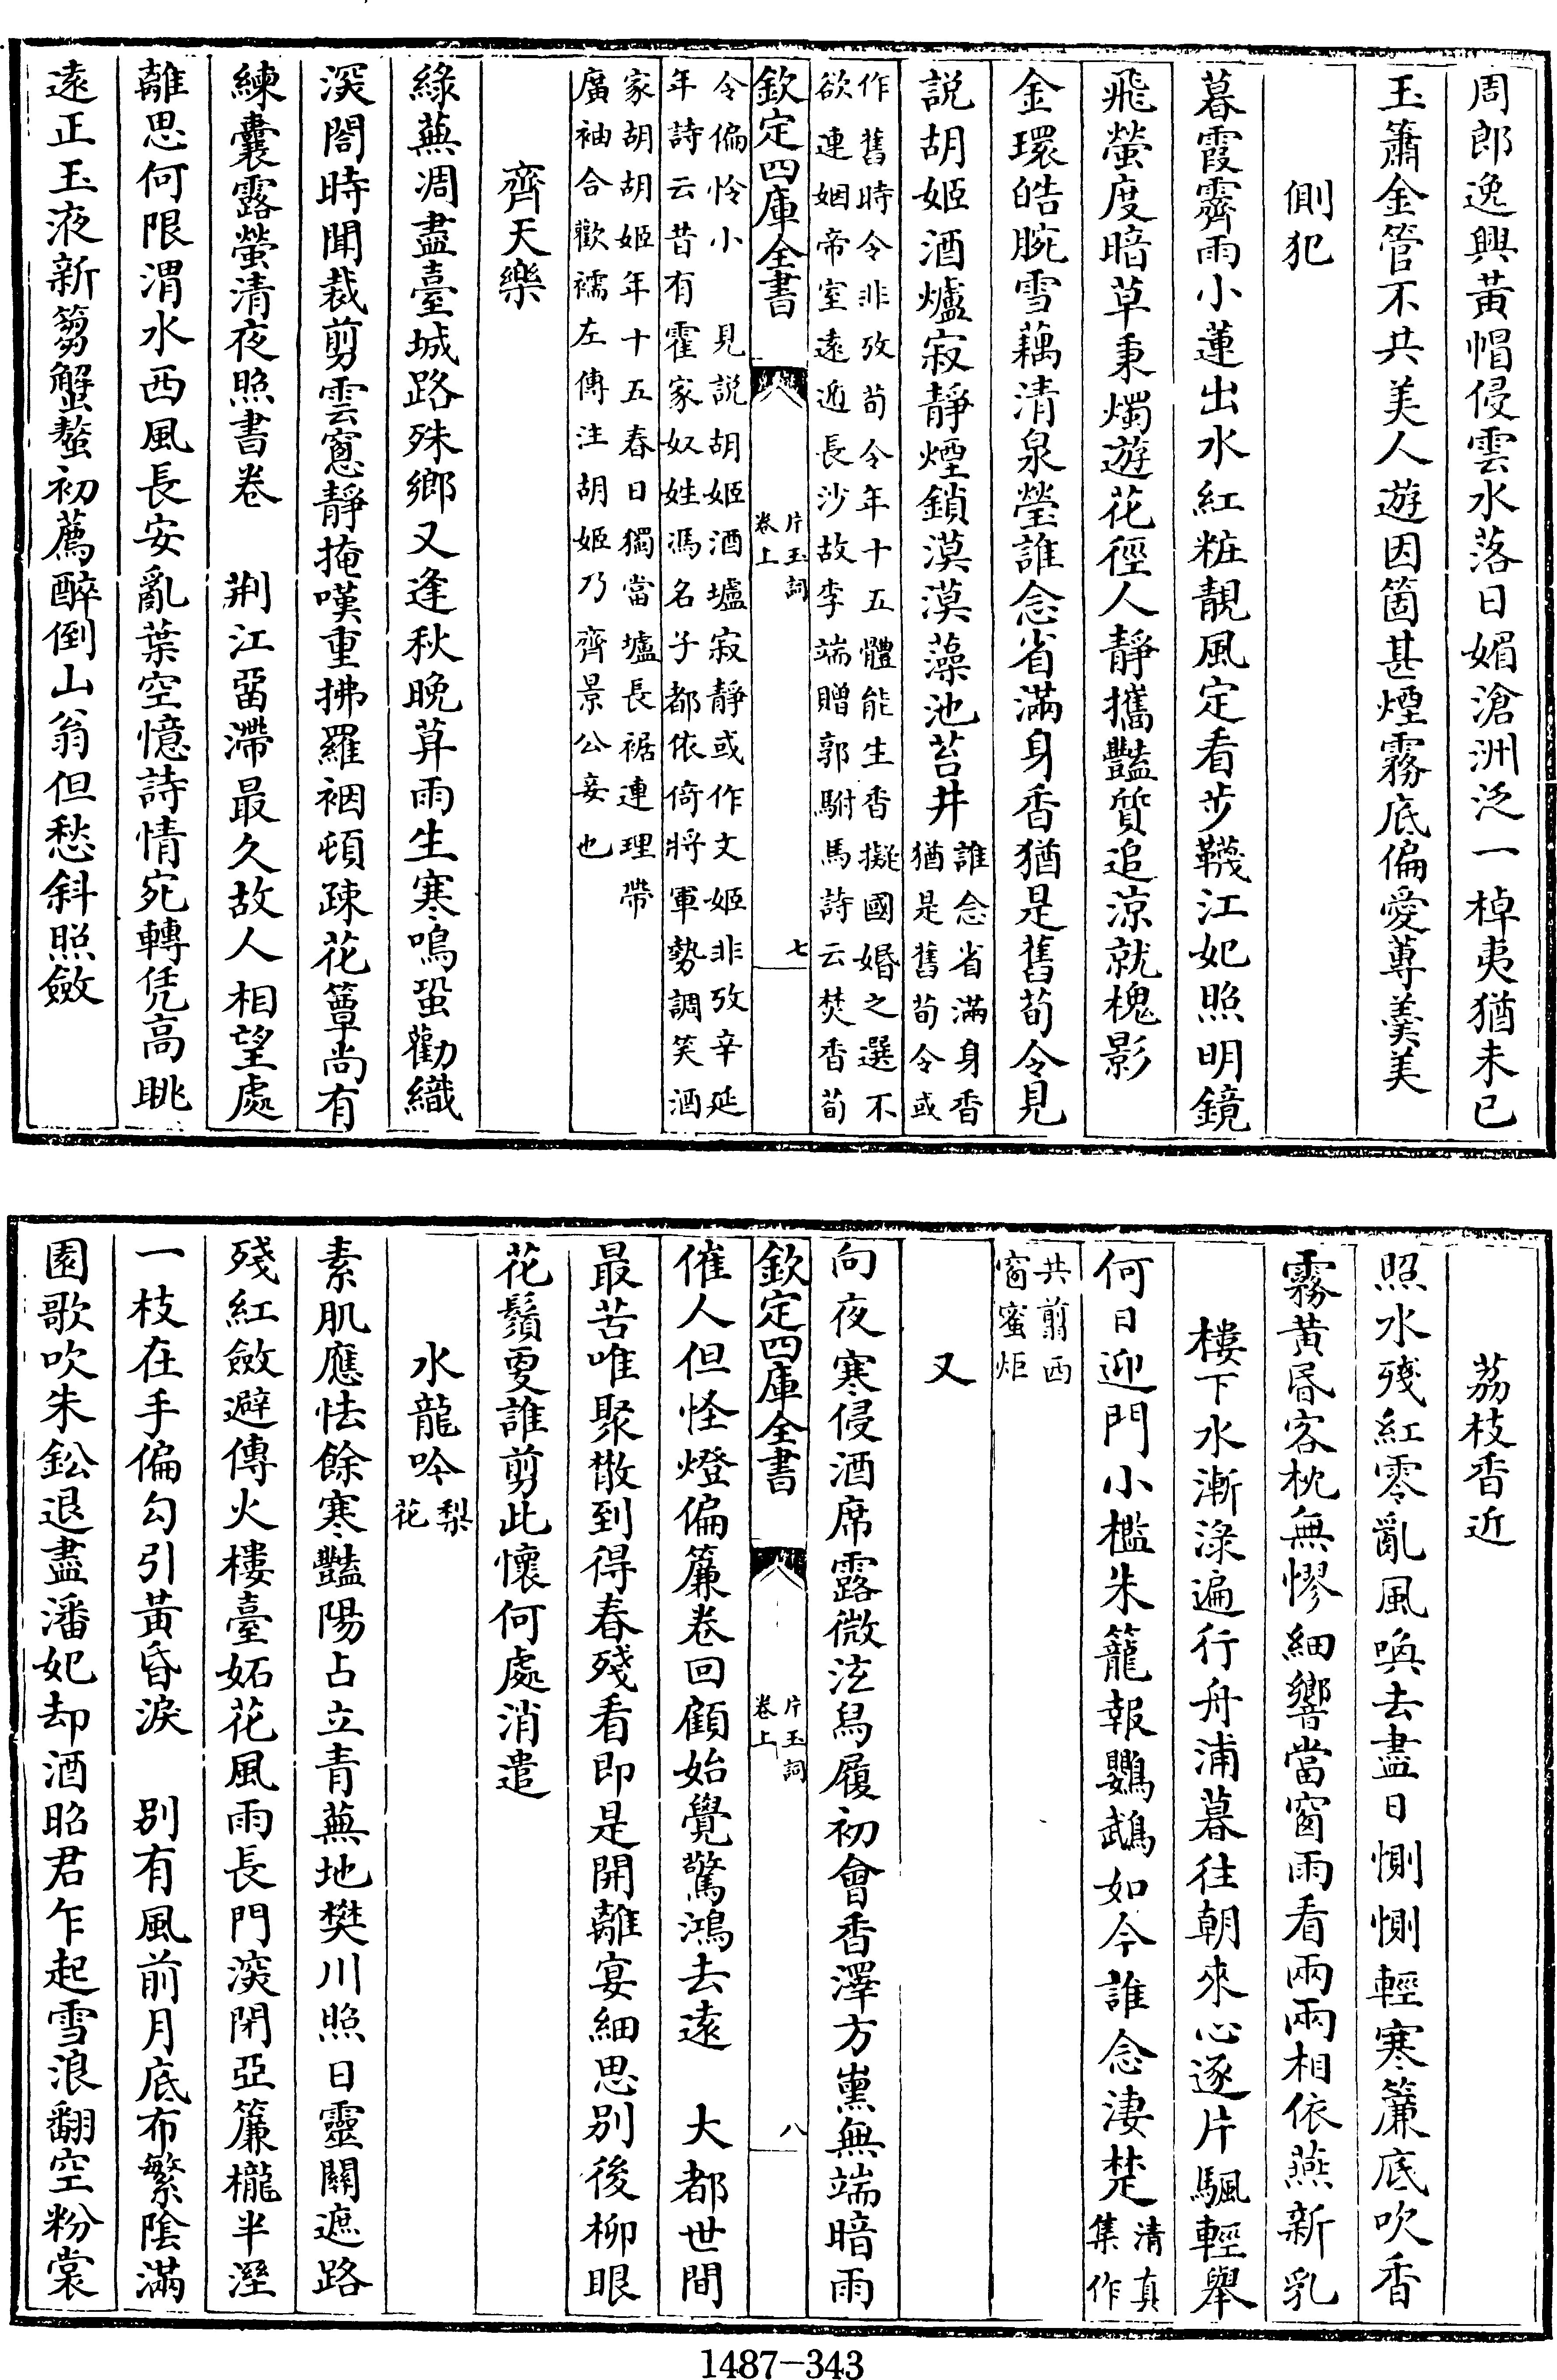 周郎逸興黃帽侵雲水落日媚滄洲泛一棹夷猶未已
玉簫金管不共美人遊因箇甚煙霧底偏愛蓴羹美
側犯
暮霞霽雨小蓮出水紅粧靚風定看步韈江妃照明鏡
飛螢度暗草秉燭遊花徑人靜攜豔質追涼就槐影
金環皓腕雪藕清泉瑩誰念省滿身香猶是舊荀令見
説胡姬酒爐寂靜煙鎖漠漠藻池苔井
誰念省滿身香
猶是舊荀令或
作舊時令非攷荀令年十五體能生香擬國婚之選不
欲連姻帝室遠逝長沙故李端贈郭駙馬詩云焚香荀
欽定四庫全書
片玉詞
卷上
七
令偏怜小 見説胡姬酒壚寂靜或作文姬非攷辛延
年詩云昔有霍家奴姓馮名子都依倚將軍勢調笑酒
家胡胡姬年十五春日獨當壚長裾連理帶
廣袖合歡襦左傳注胡姬乃齊景公妾也
齊天樂
綠蕪凋盡臺城路殊鄉又逢秋晚莫雨生寒鳴蛩勸織
深閤時聞裁剪雲窻靜掩嘆重拂羅裀頓疎花簟尚有
練囊露螢清夜照書卷 荆江畱滯最久故人相望處
離思何限渭水西風長安亂葉空憶詩情宛轉凭高眺
遠正玉液新篘蟹螯初薦醉倒山翁但愁斜照斂
荔枝香近
照水殘紅零亂風喚去盡日惻惻輕寒簾底吹香
霧黃昬客枕無憀細響當窗雨看兩兩相依燕新乳
樓下水漸淥遍行舟浦暮往朝來心逐片颿輕舉
何日迎門小檻朱籠報鸚鵡如今誰念淒楚
清真
集作
共剪西
窗蜜炬
又
向夜寒侵酒席露微泫舄履初會香澤方熏無端暗雨
欽定四庫全書
片玉詞
卷上
八
催人但怪燈偏簾卷回顧始覺驚鴻去遠 大都世間
最苦唯聚散到得春殘看即是開離宴細思别後柳眼
花鬚更誰剪此懷何處消遣
水龍吟
梨
花
素肌應怯餘寒豔陽占立青蕪地樊川照日靈關遮路
殘紅斂避傳火樓臺妬花風雨長門深閉亞簾櫳半溼
一枝在手偏勾引黃昏淚 别有風前月底布繁陰滿
園歌吹朱鉛退盡潘妃却酒昭君乍起雪浪翻空粉裳
1487-343